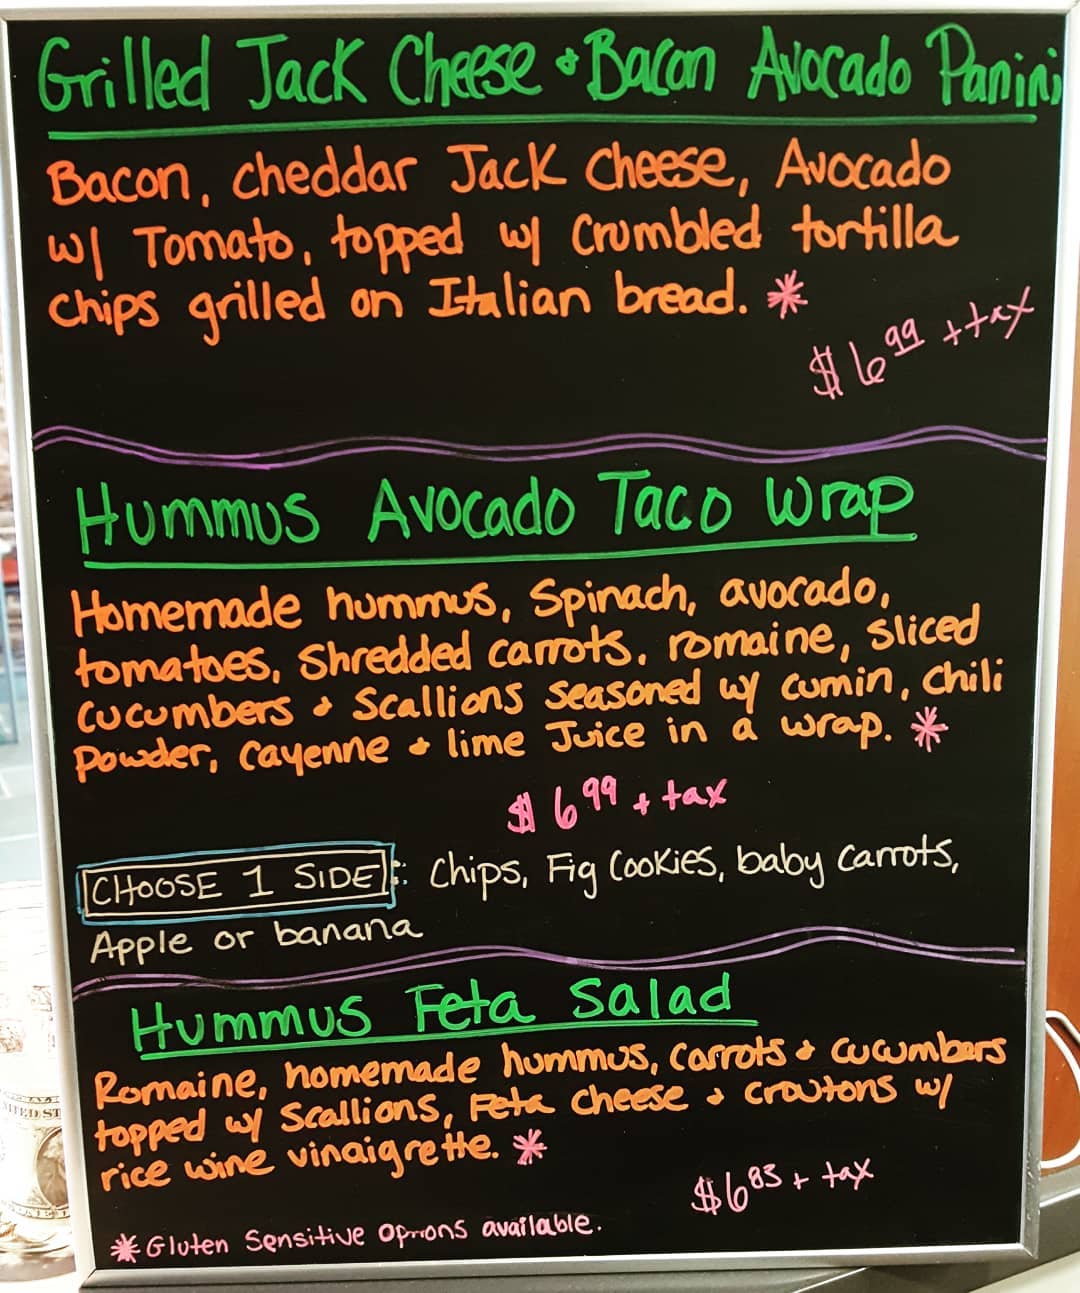 Grilled Jack Cheese & Bacon Avocado Panini
Bacon, cheddar Jack Cheese, Avocado
w/ Tomato, topped w/ Crumbled tortilla
chips grilled on Italian bread. *
$6.99 + tax
Hummus Avocado Taco Wrap
Homemade hummus, Spinach, avocado,
tomatoes, Shredded carrots, romaine, sliced
cucumbers & Scallions seasoned w/ cumin, chili
Powder, cayenne & lime Juice in a wrap. *
$6.99 + tax
CHOOSE 1 SIDE: Chips, Fig Cookies, baby carrots,
Apple or banana
Hummus Feta Salad
Romaine, homemade hummus, carrots & cucumbers
topped w/ Scallions, Feta cheese & croutons w/
rice wine vinaigrette. *
$6.83 + tax
* Gluten Sensitive Options available.